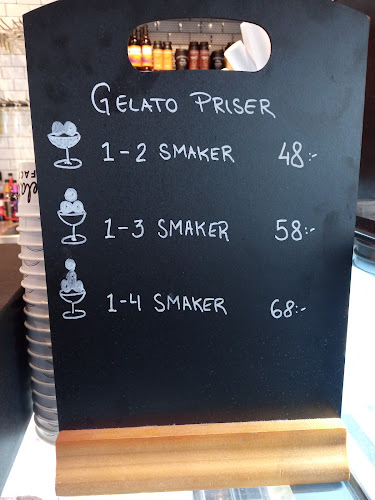 GELATO PRISER
1-2 SMAKER 48:-
1-3 SMAKER 58:-
1-4 SMAKER 68:-